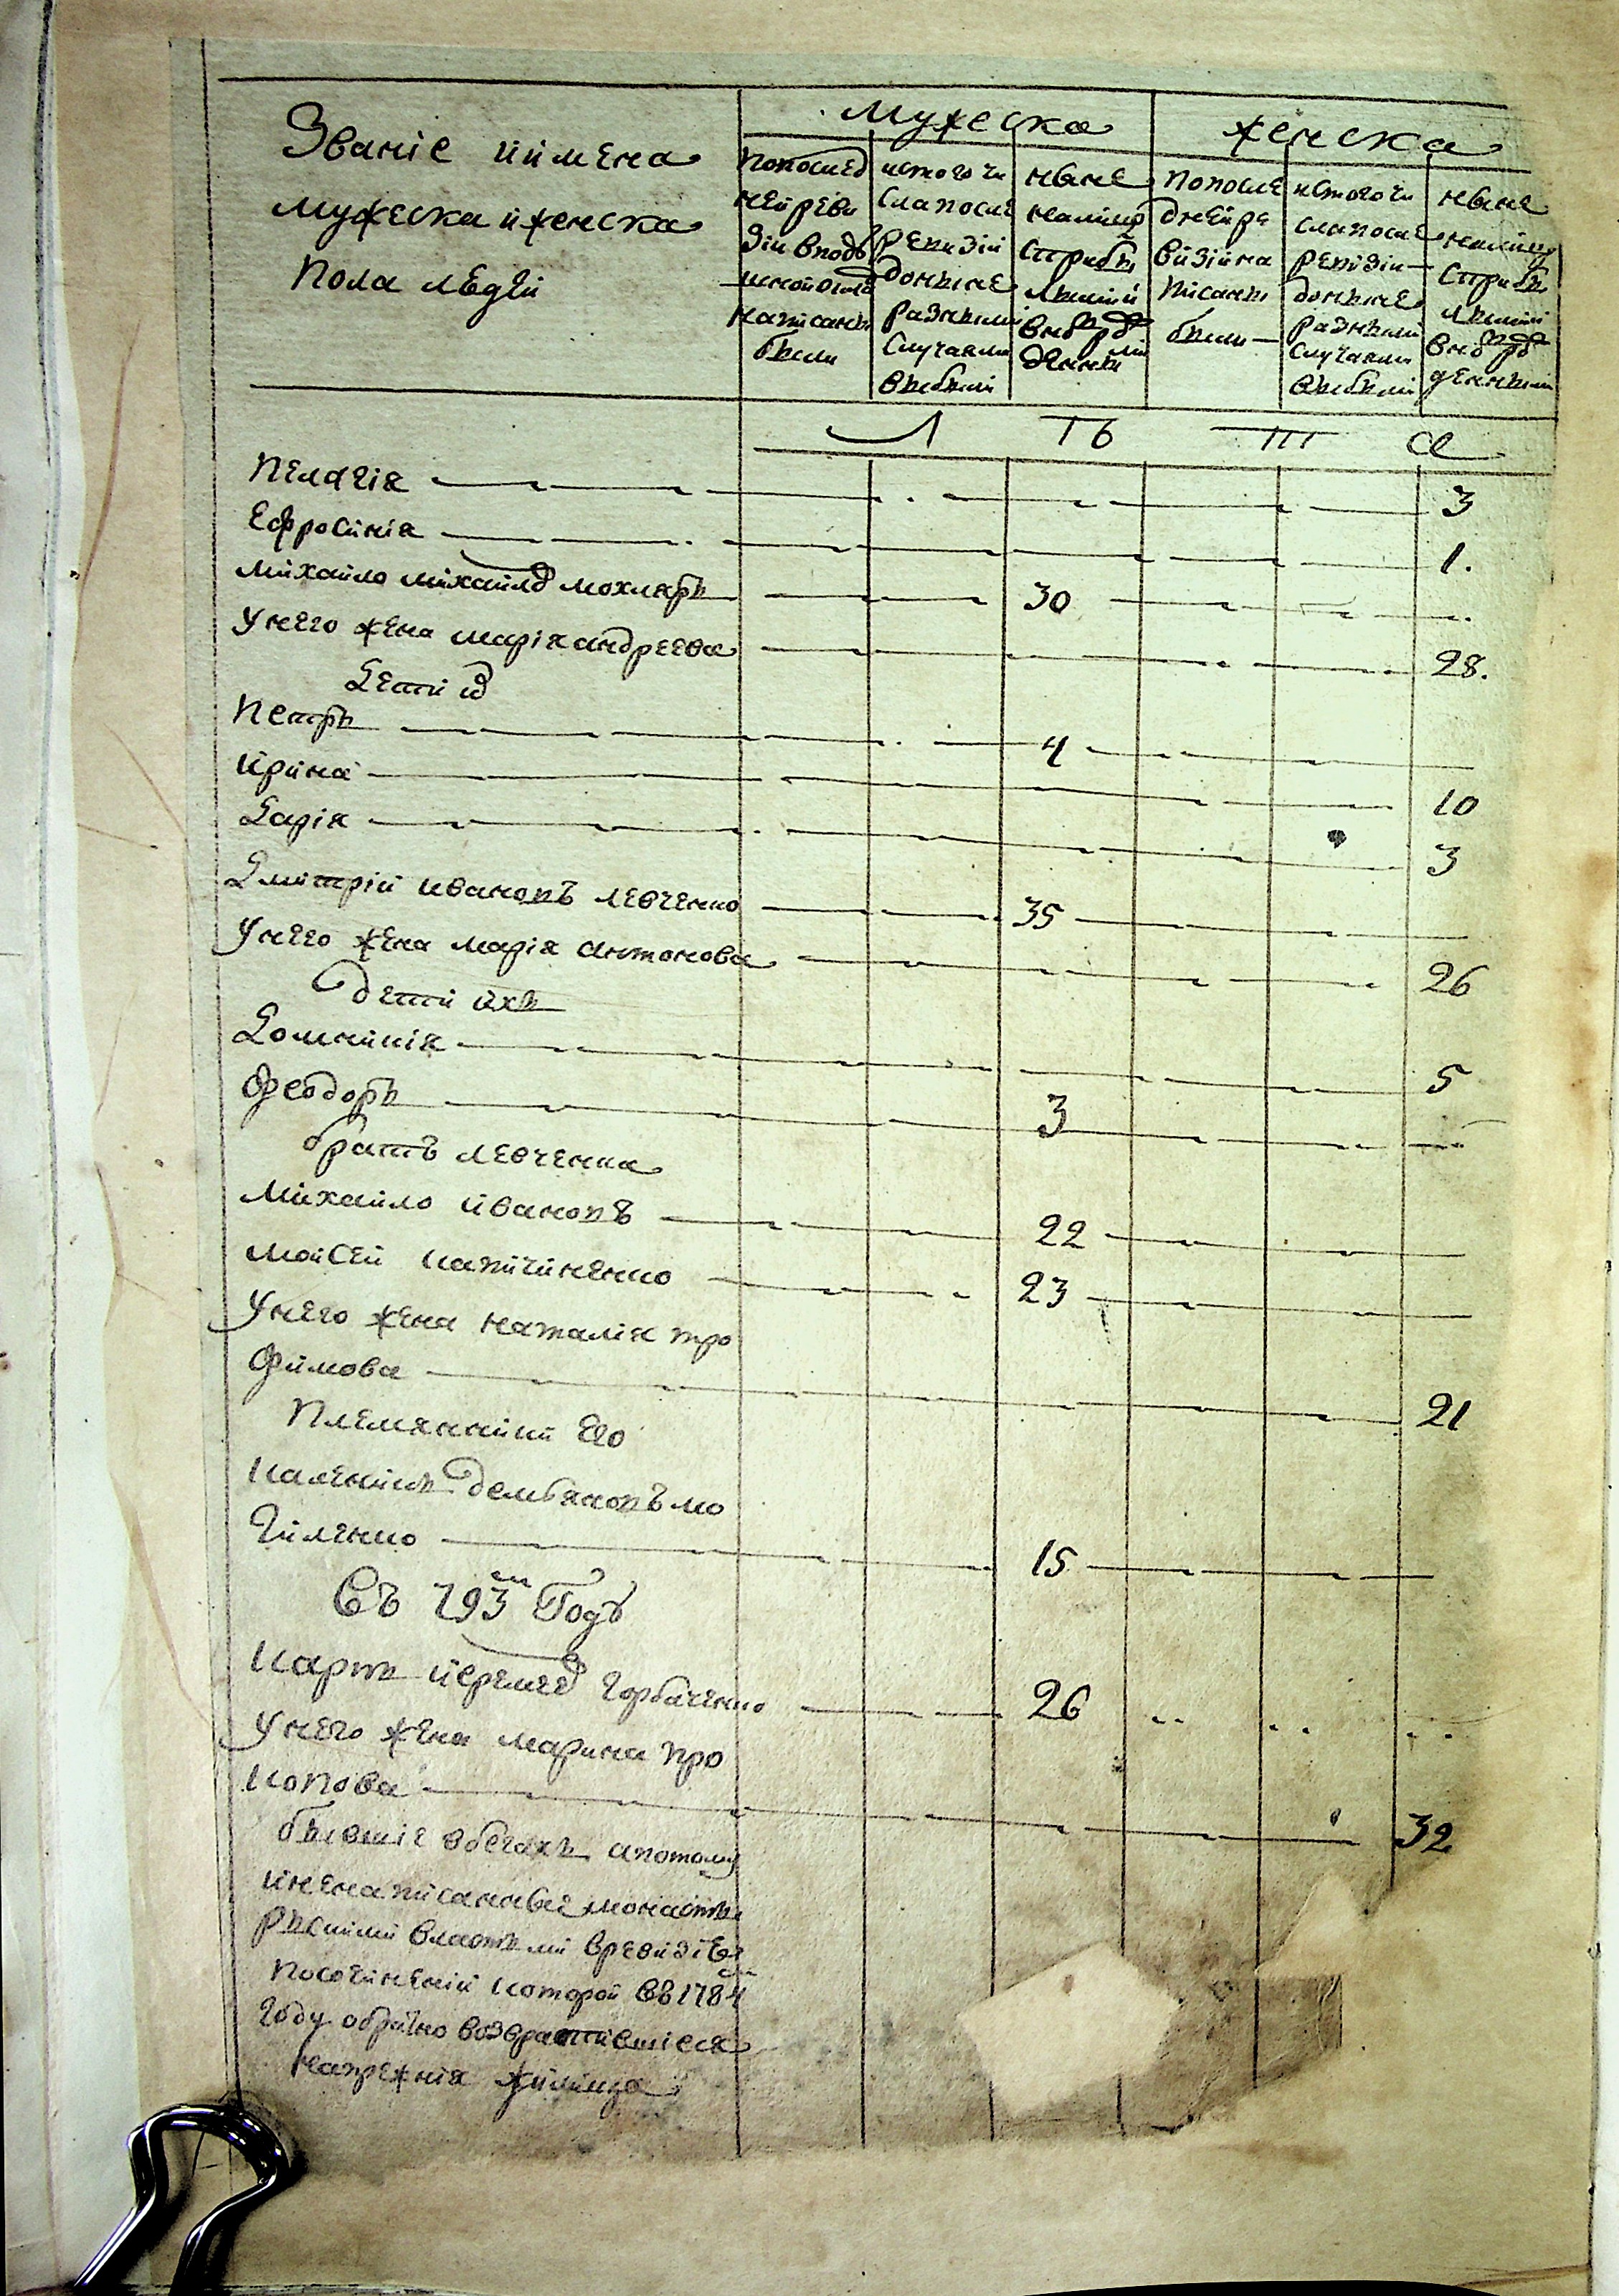 Мужеска женска
Званіе и имена
мужеска и женска
пола людей
попослед
ней реви
зіи вподу
шной окладъ
написаны
были
истого чи
сла после
ревизіи
доныне
разными
случаями
выбыли
ныне
налицо
стрибы
лыми и
вновъ ро
жденными
попосле
дней ре
визіи на
писаны
были
истого чи
сла после
ревизіи
доныне
разными
случаями
выбыли
ныне
налицо
стрибы
лыми
вновъ ро
жденными
Л ть ш а
Пелагія 3
Ефросинія 1.
Михайло михайловъ мохнарь 30
Унего жена марія андреева 28.
Дети их
Петръ 4
Ирина 10
Дарія 3
Дмитрій ивановъ левченко 35
Унего жена марія антонова 26
дети ихъ
Домникія 5
Феодоръ 3
братъ левченка
Михайло ивановъ 22
Мойсей капичиненко 23
Унего жена наталія тро
Фимова 21
Племянники его
Каленикъ демьяновъ мо
гиленко 15
Съ 793 Году
Карпъ иеремеевъ горбаченко 26
Унего жена марина про
копова 32
бывшіе вбегахъ апотому
иненаписанные монасты
рскими властьми вревизіе
посочиненіи которой въ 1784
году обратно возвратившіеся
напрежнія жилища